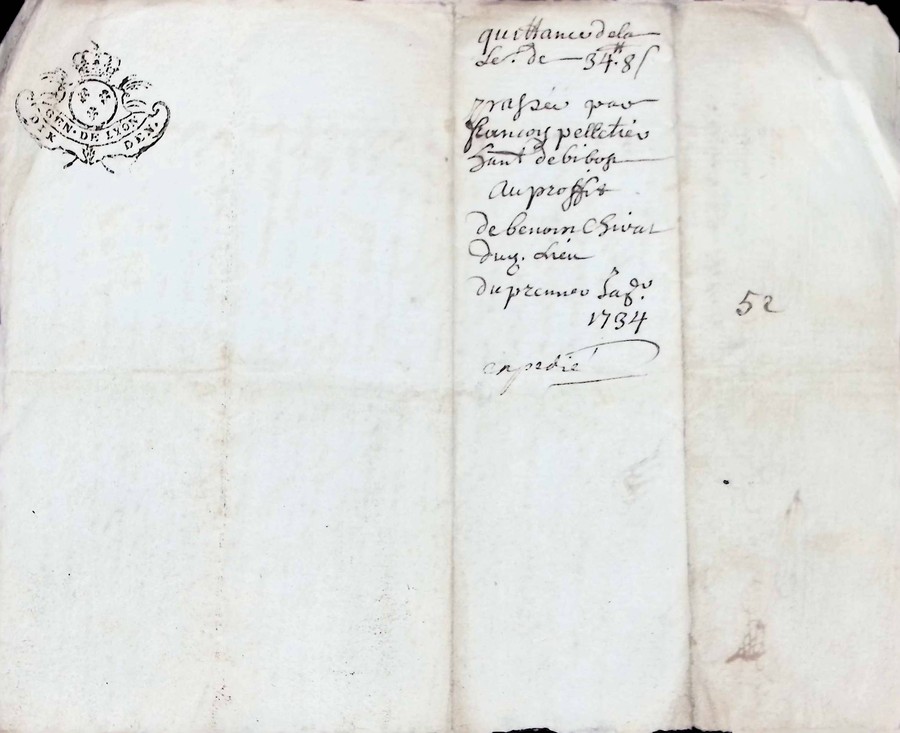 GEN. DE LYON
DIX DEN.
quittance de la
Se. de 34 ₶ 8 s
passée par
francois pelletier
hant de bibost
Au proffit
de benoist Chirat
dud. Lieu
du premier
1734
expedié
52